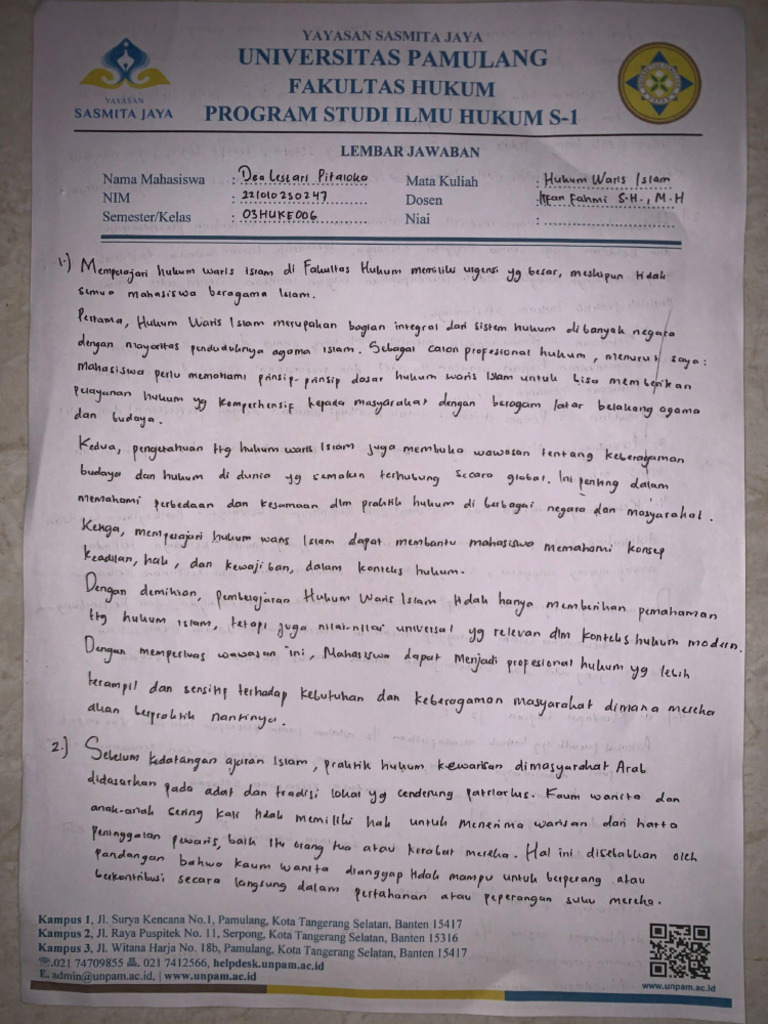 YAYASAN SASMITA JAYA
UNIVERSITAS PAMULANG
FAKULTAS HUKUM
PROGRAM STUDI ILMU HUKUM S-1
YAYASAN
SASMITA JAYA
LEMBAR JAWABAN
Nama Mahasiswa : Dea Lestari Pitaloka
Mata Kuliah : Hukum Waris Islam
NIM : 221010250247
Dosen : Irfan Fahmi S.H., M.H
Semester/Kelas : 03HUKE006
Niai :
1.) Mempelajari hukum waris Islam di Fakultas Hukum memiliki urgensi yg besar, meskipun tidak
semua mahasiswa beragama Islam.
Pertama, Hukum Waris Islam merupakan bagian integral dari sistem hukum di banyak negara
dengan mayoritas penduduknya agama Islam. Sebagai calon profesional hukum, menurut saya:
Mahasiswa perlu memahami prinsip-prinsip dasar hukum waris Islam untuk bisa memberikan
pelayanan hukum yg komperhensif kepada masyarakat dengan beragam latar belakang agama
dan budaya.
Kedua, pengetahuan ttg hukum waris Islam juga membuka wawasan tentang keberagaman
budaya dan hukum di dunia yg semakin terhubung secara global. Ini penting dalam
memahami perbedaan dan kesamaan dlm praktik hukum di berbagai negara dan masyarakat.
Ketiga, mempelajari hukum waris Islam dapat membantu mahasiswa memahami konsep
keadilan, hak, dan kewajiban, dalam konteks hukum.
Dengan demikian, pembelajaran Hukum Waris Islam tidak hanya memberikan pemahaman
ttg hukum islam, tetapi juga nilai-nilai universal yg relevan dlm konteks hukum modern.
Dengan memperluas wawasan ini, Mahasiswa dapat menjadi profesional hukum yg lebih
terampil dan sensitif terhadap kebutuhan dan keberagaman masyarakat dimana mereka
akan berpraktik nantinya.
2.) Sebelum kedatangan ajaran Islam, praktik hukum kewarisan dimasyarakat Arab
didasarkan pada adat dan tradisi lokal yg cenderung patriarkis. Kaum wanita dan
anak-anak sering kali tidak memiliki hak untuk menerima warisan dari harta
peninggalan pewaris, baik itu orang tua atau kerabat mereka. Hal ini disebabkan oleh
pandangan bahwa kaum wanita dianggap tidak mampu untuk berperang atau
berkontribusi secara langsung dalam pertahanan atau peperangan suku mereka.
Kampus 1, Jl. Surya Kencana No.1, Pamulang, Kota Tangerang Selatan, Banten 15417
Kampus 2, Jl. Raya Puspitek No. 11, Serpong, Kota Tangerang Selatan, Banten 15316
Kampus 3, Jl. Witana Harja No. 18b, Pamulang, Kota Tangerang Selatan, Banten 15417
021 74709855 021 7412566, helpdesk.unpam.ac.id
E. admin@unpam.ac.id, | www.unpam.ac.id
www.unpam.ac.id